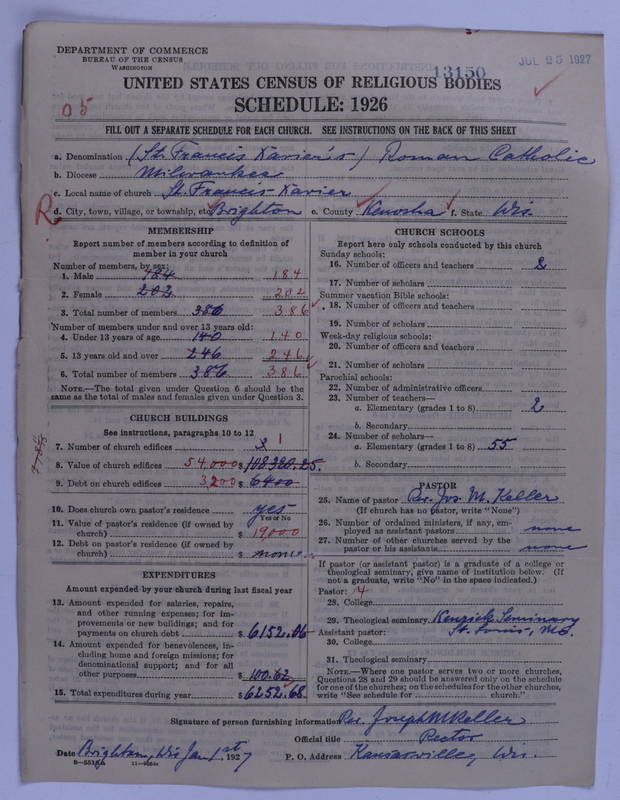 DEPARTMENT OF COMMERCE
BUREAU OF THE CENSUS
WASHINGTON
13150
JUL 25 1927
UNITED STATES CENSUS OF RELIGIOUS BODIES
SCHEDULE: 1926
05
FILL OUT A SEPARATE SCHEDULE FOR EACH CHURCH. SEE INSTRUCTIONS ON THE BACK OF THIS SHEET
a. Denomination (St. Francis Xavier's) Roman Catholic
b. Diocese Milwaukee
c. Local name of church St. Francis Xavier
R d. City, town, village, or township, etc. Brighton e. County Kenosha f. State Wis.
MEMBERSHIP
Report number of members according to definition of member in your church
Number of members, by sex:
1. Male 184 184
2. Female 202 202
3. Total number of members 386 386
Number of members under and over 13 years old:
4. Under 13 years of age 140 140
5. 13 years old and over 246 246
6. Total number of members 386 386
NOTE.—The total given under Question 6 should be the same as the total of males and females given under Question 3.
CHURCH BUILDINGS
See instructions, paragraphs 10 to 12
7. Number of church edifices 3 1
8. Value of church edifices 54,000 $ 108320.25.
9. Debt on church edifices 3,200 $ 6400
10. Does church own pastor's residence yes
Yes or No
11. Value of pastor's residence (if owned by church) $ 19,000
12. Debt on pastor's residence (if owned by church) $ none
EXPENDITURES
Amount expended by your church during last fiscal year
13. Amount expended for salaries, repairs, and other running expenses; for improvements or new buildings; and for payments on church debt $ 6152.06
14. Amount expended for benevolences, including home and foreign missions; for denominational support; and for all other purposes $ 100.62
15. Total expenditures during year $ 6252.68
CHURCH SCHOOLS
Report here only schools conducted by this church
Sunday schools:
16. Number of officers and teachers 2
17. Number of scholars
Summer vacation Bible schools:
18. Number of officers and teachers
19. Number of scholars
Week-day religious schools:
20. Number of officers and teachers
21. Number of scholars
Parochial schools:
22. Number of administrative officers
23. Number of teachers—
a. Elementary (grades 1 to 8) 2
b. Secondary
24. Number of scholars—
a. Elementary (grades 1 to 8) 55
b. Secondary
PASTOR
25. Name of pastor Rev. Jos. M. Keller
(If church has no pastor, write "None")
26. Number of ordained ministers, if any, employed as assistant pastors none
27. Number of other churches served by the pastor or his assistants none
If pastor (or assistant pastor) is a graduate of a college or theological seminary, give name of institution below. (If not a graduate, write "No" in the space indicated.)
Pastor: 4
28. College
29. Theological seminary Kenrick Seminary
St. Louis, Mo.
Assistant pastor:
30. College
31. Theological seminary
NOTE.—Where one pastor serves two or more churches, Questions 28 and 29 should be answered only on the schedule for one of the churches; on the schedules for the other churches, write "See schedule for church."
Signature of person furnishing information Rev. Joseph M Keller
Official title Rector
Date Brighton, Wis Jan 1st, 1927 P. O. Address Kansasville, Wis.